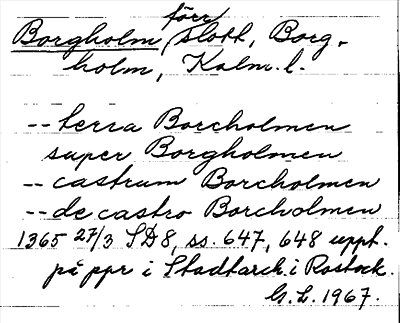 förr
Borgholm, slott, Borg-
holm, Kalm. l.
-- terra Borcholmen
super Borgholmen
-- castrum Borcholmen
-- de castro Borcholmen
1365 27/3 SD8, ss. 647, 648 uppt.
på ppr i Stadtarch. i Rostock.
G. L. 1967.